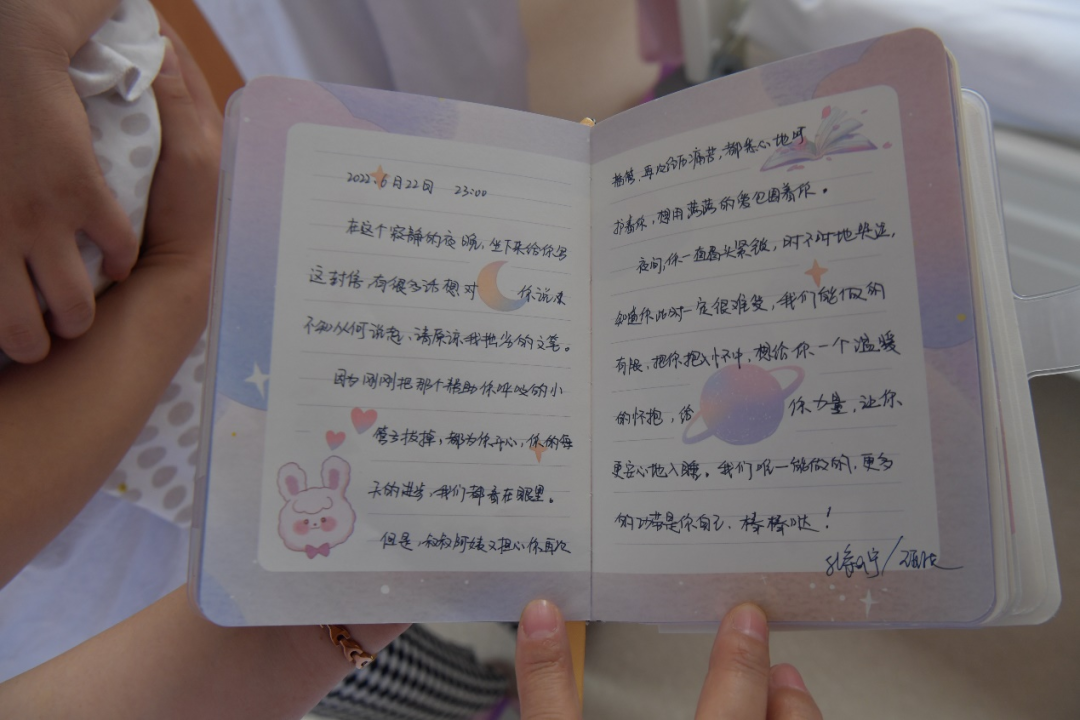 2022.6月22日 23:00
在这个寂静的夜晚,坐下来给你写
这封信,有很多话想对你说,来
不知从何说起、请原谅我拙劣的文笔。
因为刚刚把那个帮助你呼吸的小
管子拔掉,都为你开心,你的每
天的进步,我们都看在眼里。
但是,叔叔阿姨又担心你再次
插管、再次经历痛苦,都悉心地呵
护着你,想用满满的爱包围着你。
夜间,你一直眉头紧皱,时不时地哭泣,
知道你此时一定很难受,我们能做的
有限,把你抱入怀中,想给你一个温暖
的怀抱,给你力量,让你
更安心地入睡。我们唯一能做的,更多
的功劳是你自己,棒棒哒!